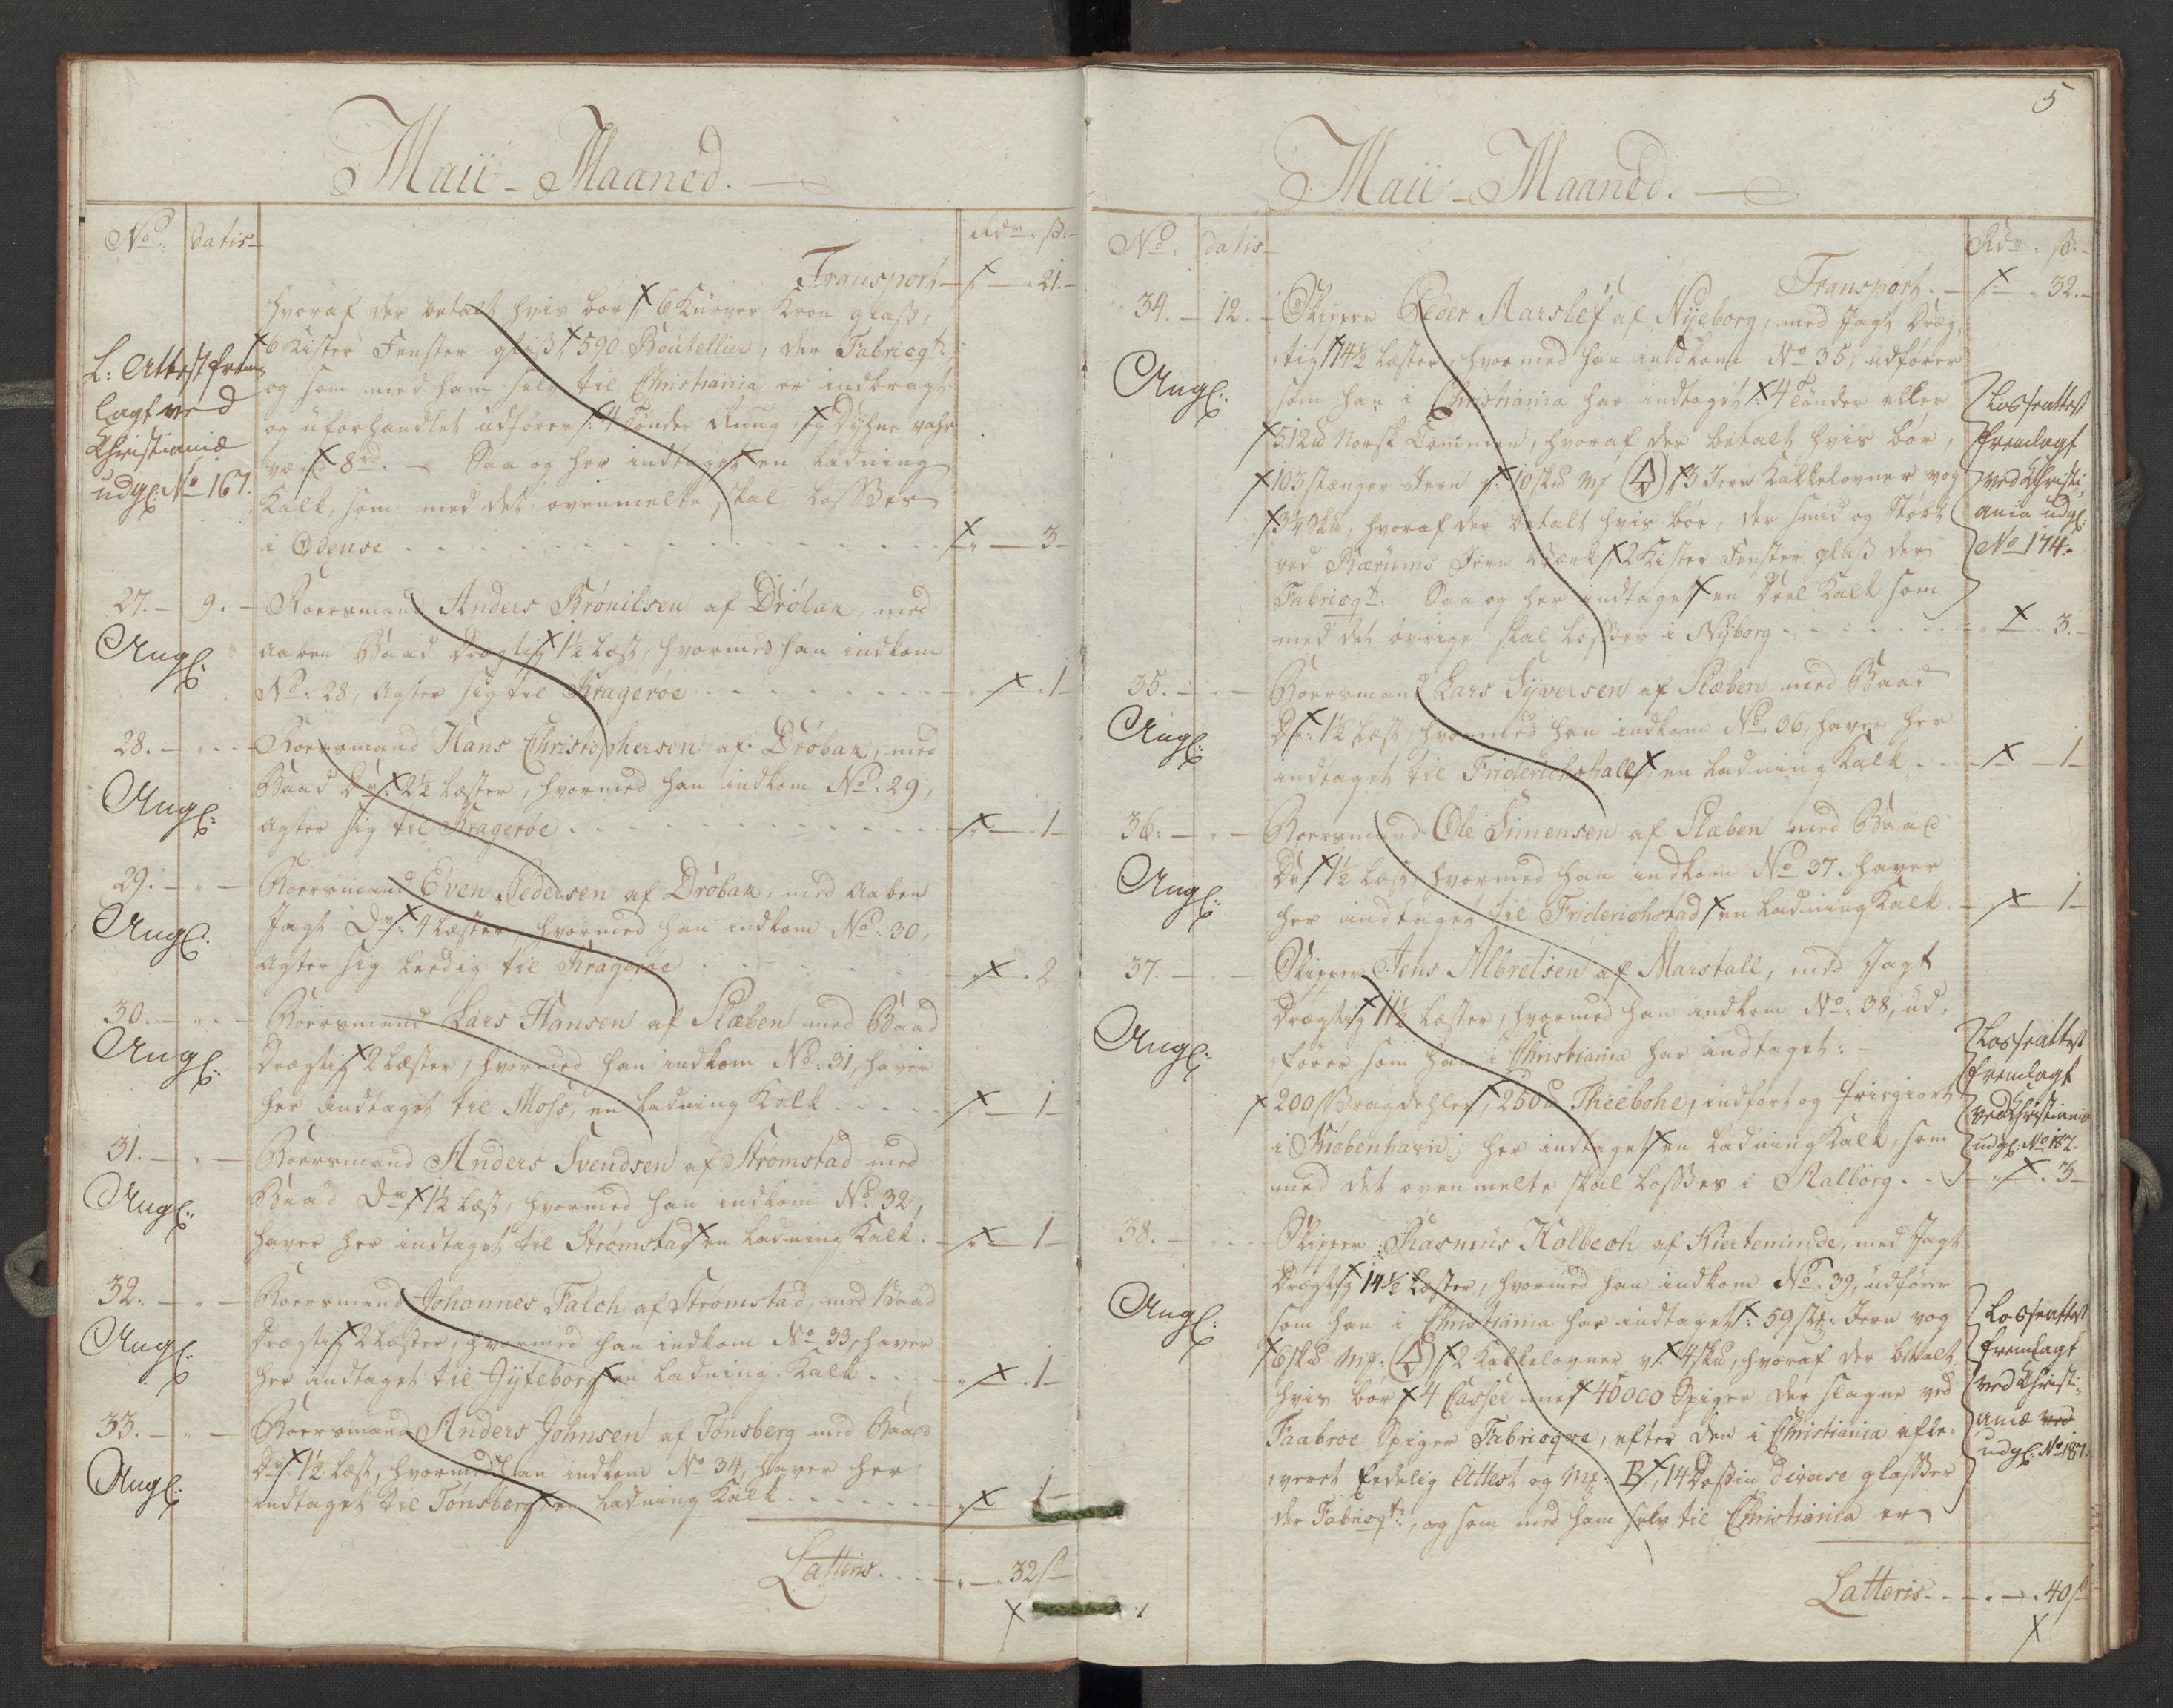 Maii - Maaned.
No. datis Rdr. ß.
Transport 21.
hvoraf der betalt hvis bør 6 Kurver Kron glass,
6 Kister Fenster glass, 590 Bouteller, der Fabriqt:
og som med ham selv til Christiania er indbragt
og uforhandlet udfører: 4 Tønder Rug, Dyhne vahr
værd 8 rd. Saa og her indtaget en ladning
Kalk, som med det ovenmelte skal losses
i Odense 3
L: Attest frem
lagt ved
Christianiæ
udgl: No 167.
27. 9. Koersmand Anders Brønilsen af Drøbak, med
Aaben Baad drægtig 1½ læst, hvormed han indkom
No. 28, agter sig til Kragerøe 1
Angl:
28. Koersmand Hans Christophersen af Drøbak, med
Baad Dr: 2½ læster, hvormed han indkom No. 29,
agter sig til Kragerøe 1
Angl:
29. Koersmand Even Pedersen af Drøbak, med aaben
Jagt Dr: 4 læster, hvormed han indkom No. 30,
agter sig leedig til Kragerøe 2
Angl:
30. Koersmand Lars Hansen af Slæben med Baad
drægtig 2 læster, hvormed han indkom No. 31, haver
her indtaget til Moss, en ladning Kalk 1
Angl:
31. Koersmand Anders Svendsen af Strømstad med
Baad Dr 1½ læst, hvormed han indkom No. 32,
haver her indtaget til Strømstad en ladning Kalk. 1
Angl:
32. Koersmand Johannes Falch af Strømstad, med Baad
drægtig 2 læster, hvormed han indkom No 33, haver
her indtaget til Gyteborg en ladning Kalk 1
Angl:
33. Koersmand Anders Johnsen af Tønsberg med Baad
Dr: 1½ læst, hvormed han indkom No 34, haver her
indtaget til Tønsberg en ladning Kalk 1
Angl:
Latteris 32 ß
5
Maii - Maaned.
No. datis Rdr. ß.
Transport. 32.
34. 12. Skipper Peder Aarslef af Nyeborg, med Jagt dræg,
tig 14½ læster, hvormed han indkom No 35, udfører
som han i Christiania har indtaget: 4 Tønder eller
512 lb Norsk Commen, hvoraf der betalt hvis bør,
103 stænger Jern, 10 sklb Mf 3 Jern Kakkelovner vog
3¼ sklb, hvoraf der betalt hvis bør, der smid og støbt
ved Bærums Jern Værk, 2 Kister Fenster glass der
Fabriqt. Saa og her indtaget en Deel Kalk som
med det øvrige skal losses i Nyborg 3.
Angl:
Losseattest
fremlagt
ved Christi,
ania udgl:
No 174.
35. Koersmand Lars Syversen af Slæben med Baad
Dr: 1½ læst, hvormed han indkom No 36, haver her
indtaget til Friderichshall, en ladning Kalk 1
Angl:
36. Koersmand Ole Simensen af Slæben med Baad
Dr 1½ læst, hvormed han indkom No 37. haver
her indtaget til Friderichstad en ladning Kalk. 1
Angl:
37. Skipper Jens Albretsen af Marstall, med Jagt
drægtig 11½ læster, hvormed han indkom No. 38, ud,
fører som han i Christiania har indtaget:
200 Vragdehler, 250 lb Theebohe, indført og frigiort
i Kiøbenhavn; her indtaget en ladning Kalk, som
med det ovenmelte skal losses i Aalborg. 3
Angl:
Losseattest
fremlagt
ved Christianiæ
udgl: No 182.
38. Skipper Rasmus Holbech af Kierteminde, med Jagt
drægtig 14½ læster, hvormed han indkom No. 39, udfører
som han i Christiania har indtaget: 59 st: Jern vog
6 sklb Mf: 2 Kakkelovner v: 4 sklb, hvoraf der betalt
hvis bør 4 Casser med 40000 Spiger der slagne ved
Faabroe Spiger Fabriqve, efter den i Christiania afle,
veret Eedelig Attest og Mf: B, 14 Dossin diverse glasser
der Fabriqt:, og som med ham selv til Christiania er
Angl:
Losseattest
fremlagt
ved Christi,
aniæ ved
udgl: No 187.
Latteris 40 ß